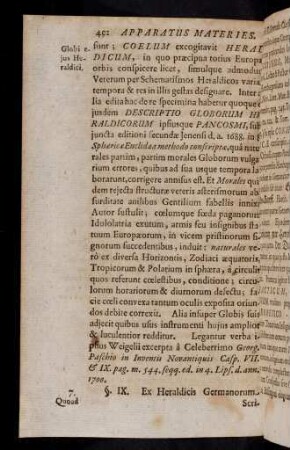 492 APPARATUS MATERIES.
Globi e-
jus He-
raldici.
sunt; COELUM excogitavit HERAL
DICUM, in quo præcipua totius Europæ
orbis conspicere licet, simulque admodum
Veterum per Schematismos Heraldicos varia
tempora & res in illis gestas designare. Inter
lia edita hac de re specimina habetur quoque
jusdem DESCRIPTIO GLOBORUM HE
RALDICORUM ipsiusque PANCOSMI, sub
juncta editioni secundæ Jenensi d. a. 1688. in
Sphærica Euclidea methodo conscripta, quâ natu
rales partim, partim morales Globorum vulga
rium errores, quibus ad sua usque tempora la
borarunt, corrigere annisus est. Et Morales qui
dem rejecta structuræ veteris asterismorum ab
surditate anilibus Gentilium fabellis innixa
Autor sustulit; cœlumque fixda paganorum
Idololatria exutum, armis seu insignibus sta
tuum Europæorum, in vicem pristinorum si
gnorum succedentibus, induit: naturales ve
rò ex diversa Horizontis, Zodiaci æquatoris,
Tropicorum & Polarium in sphæra, à circulis
quos referunt cælestibus, conditione; circu
lorum horariorum & diumorum defectu; fa
cie cœli convexa tantum oculis exposita oriun
dos debite correxit. Alia insuper Globis suis
adjecit quibus usus instrumenti hujus amplior
& luculentior redditur. Legantur verba i
psius Weigelii excerpta à Celeberrimo Georg.
Paschio in Inventis Novantiquis Cap. VII.
& IX. pag. m. 544. seqq. ed. in 4. Lips. d. ann.
1700.
7.
Quoad
§. IX. Ex Heraldicis Germanorum
Scri-